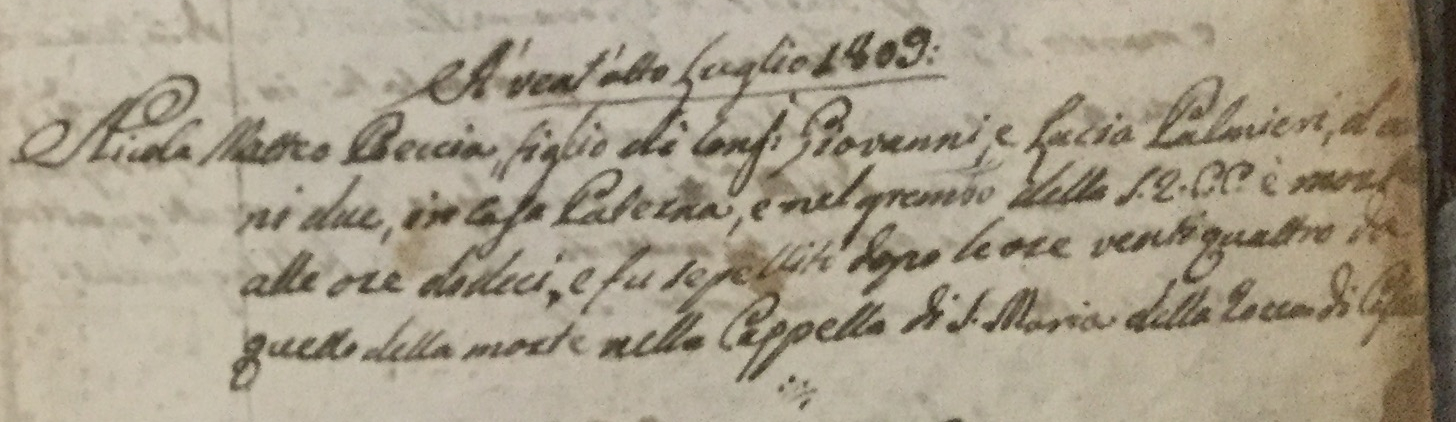 A' vent'otto Luglio 1809:
Nicola Matteo Beccia, figlio di Conj: Giovanni, e Lucia Palmieri, d'an
ni due, in casa Paterna, e nel grembo della S. R. CC. è mort
alle ore dodeci, e fu sepellito dopo le ore ventiquattro da
quella della morte nella Cappella di S. Maria della Rocca di